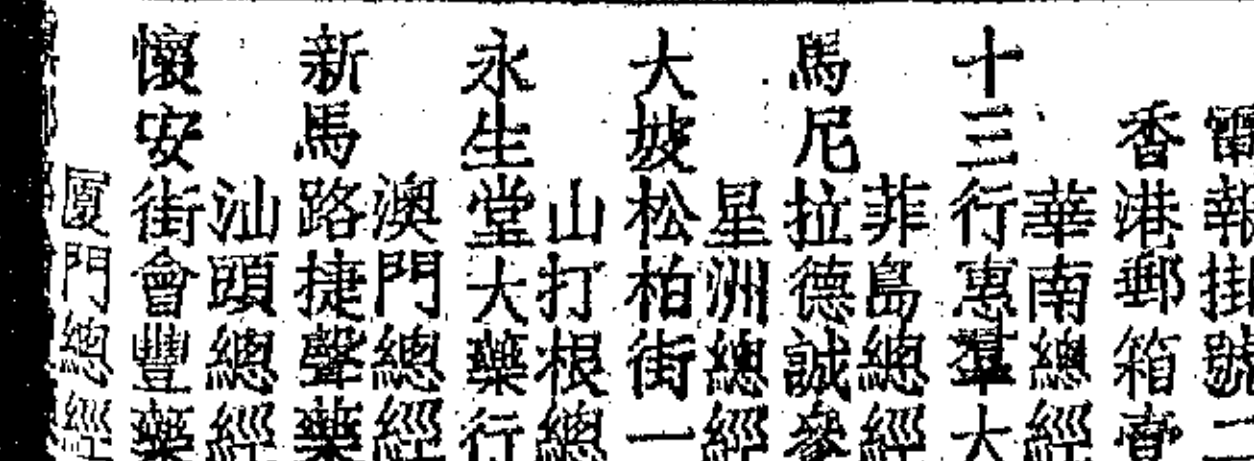 電報掛號二
香港郵箱壹
華南總經
十三行惠羣大
菲島總經
馬尼拉德誠參
星洲總經
大坡松柏街一
山打根總
永生堂大藥行
澳門總經
新馬路捷聲藥
汕頭總經
懷安街會豐藥
厦門總經